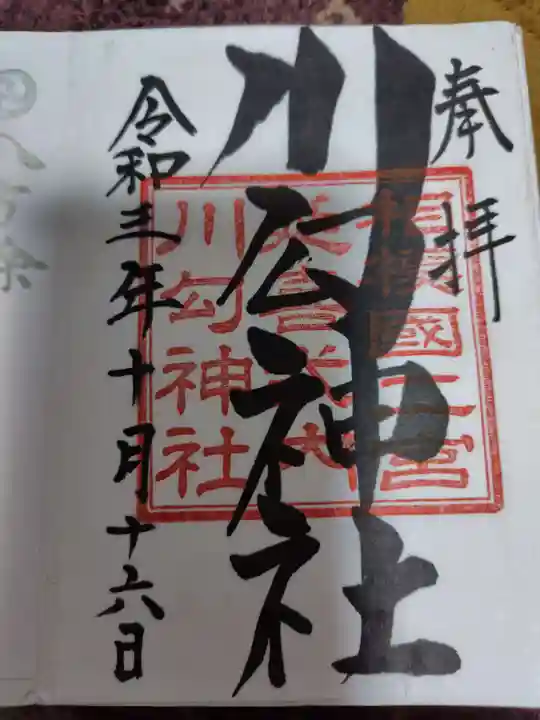 奉拝
川勾神社
相模國二宮
延喜式内
川勾神社
令和三年十月十六日